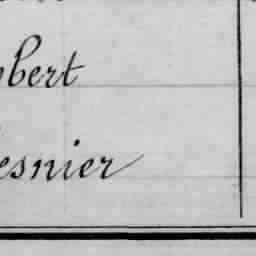 bert
esnier